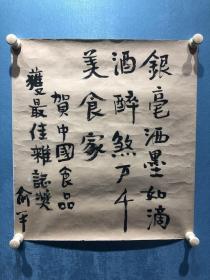 銀毫洒墨如滴
酒醉煞万千
美食家
賀中國食品
獲最佳雜誌獎
俞平